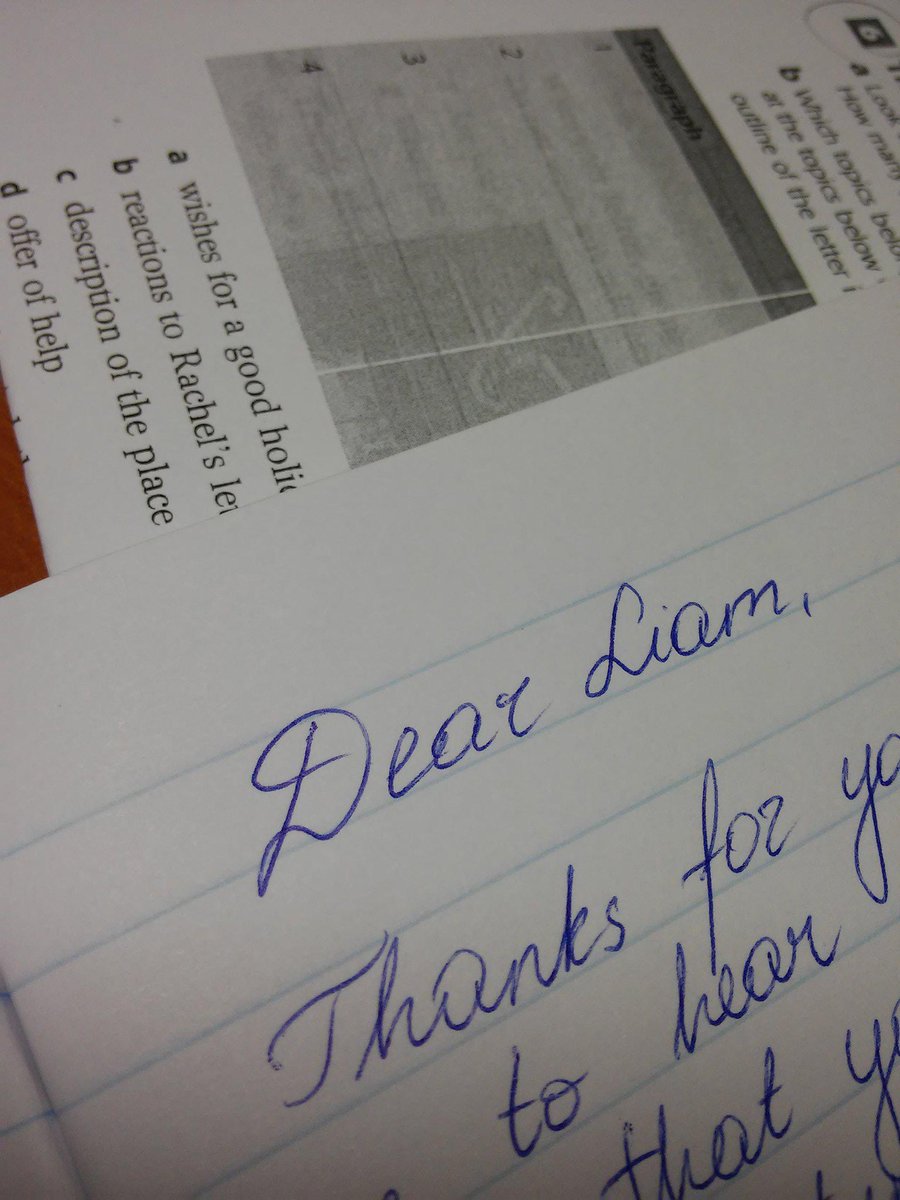 6
a Look
How many
b Which topics
at the topics below
outline of the letter
Paragraph
1
2
3
4
a wishes for a good
b reactions to Rachel's
c description of the place
d offer of help
Dear Liam,
Thanks for
to hear
that